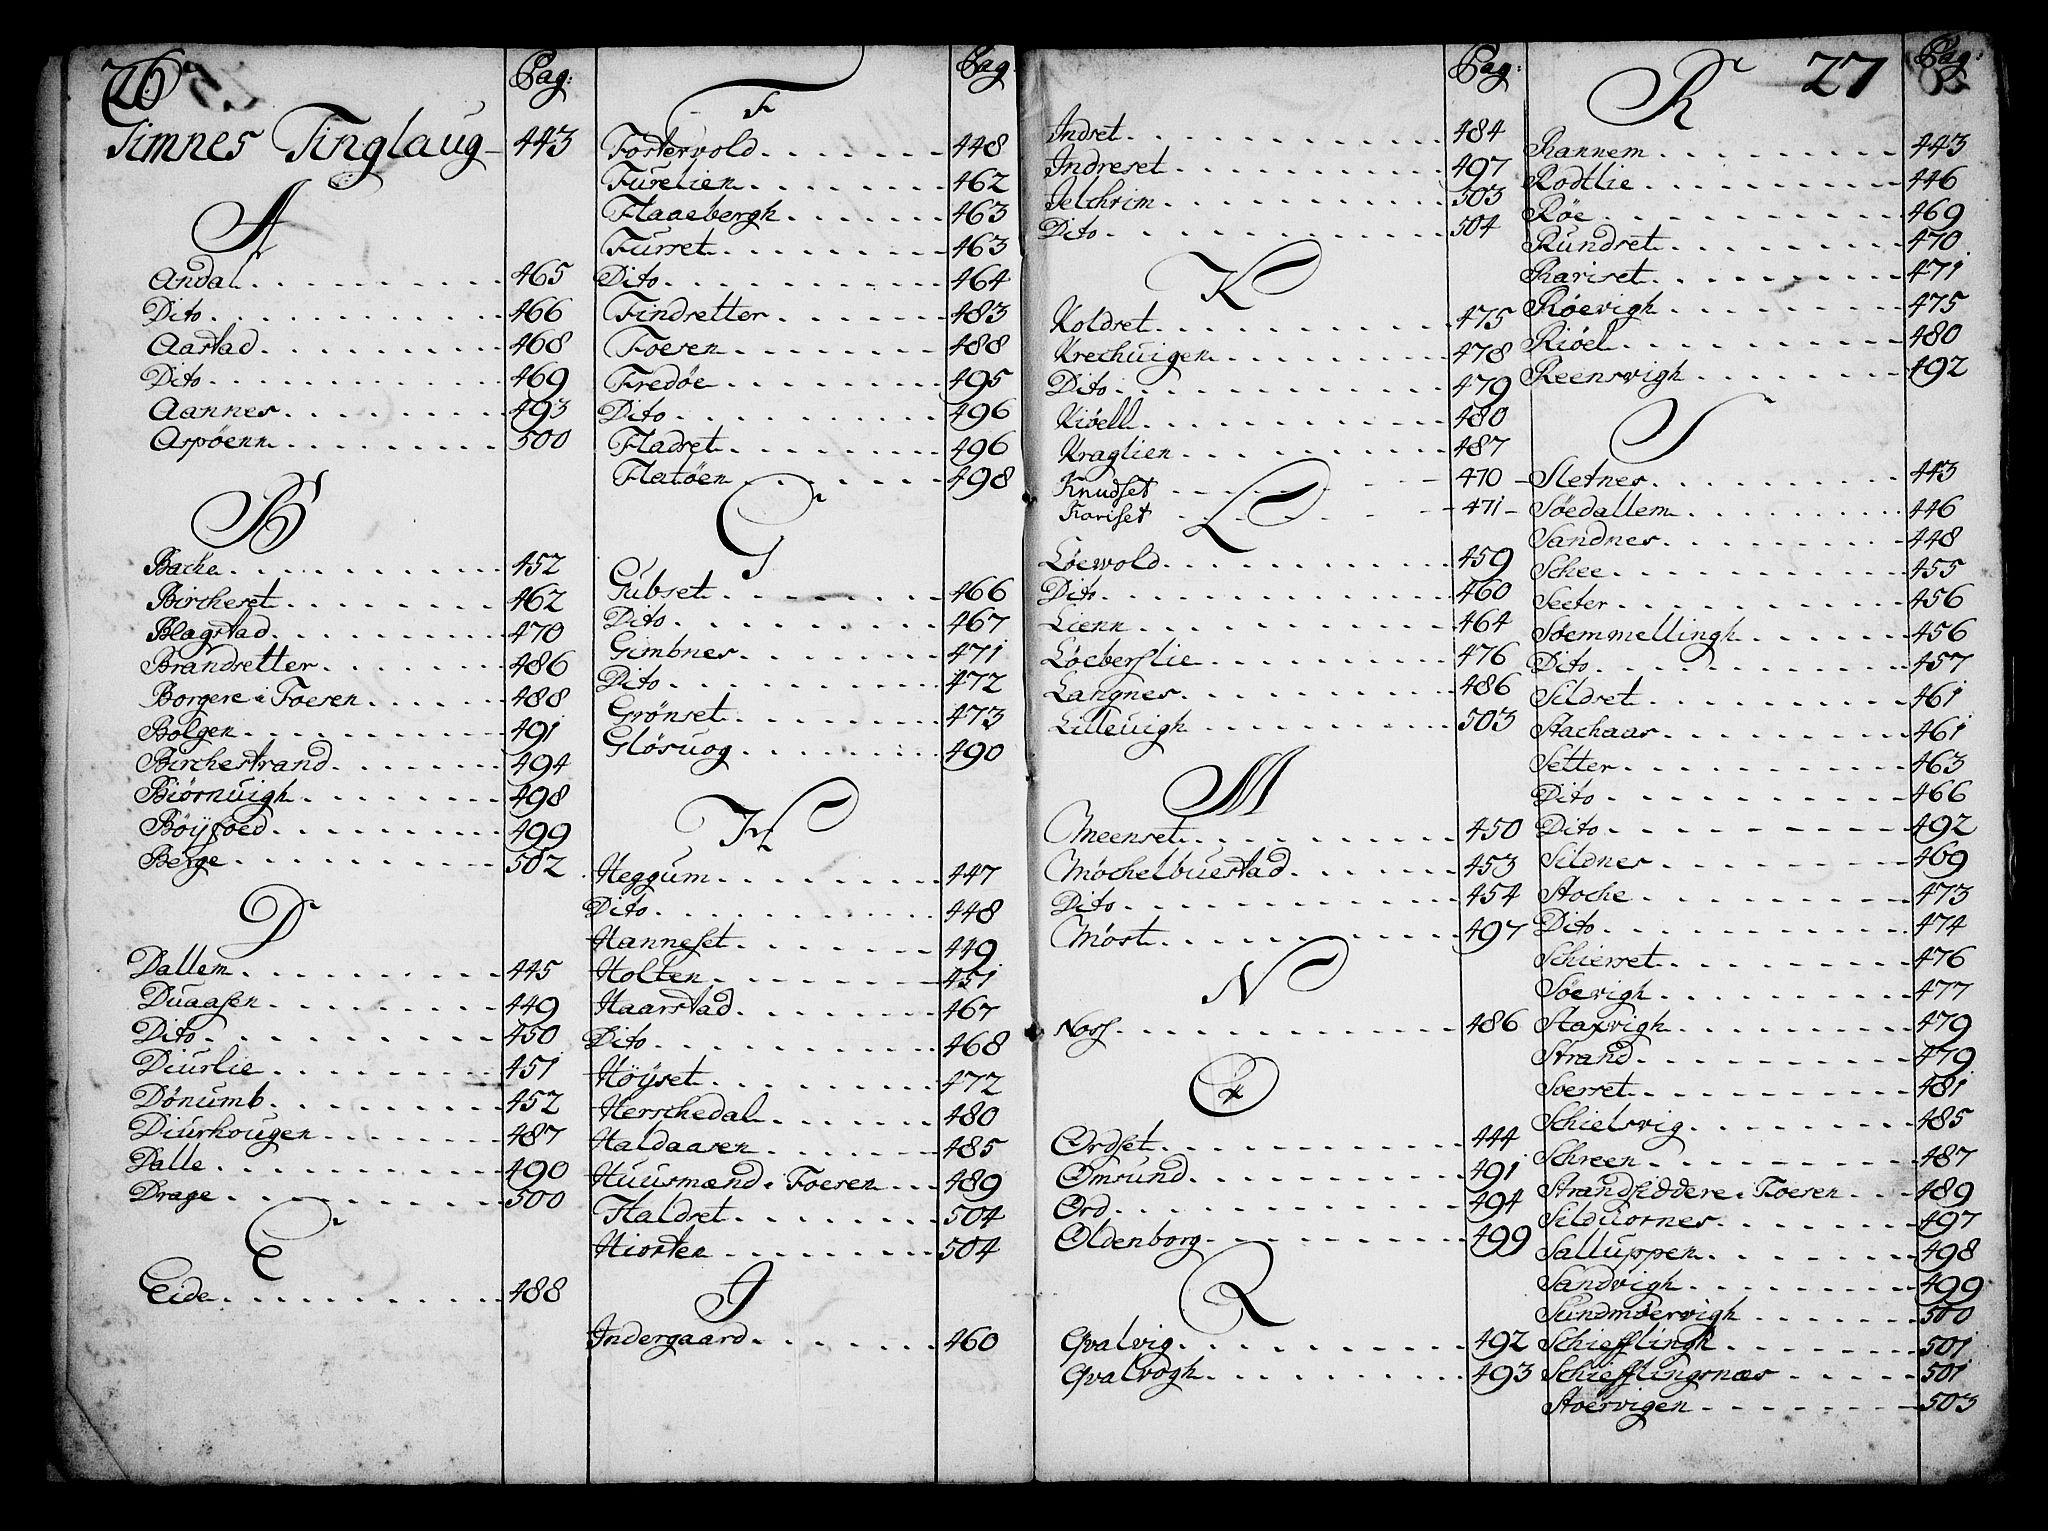 26
Pag:
Timnes Tinglaug 443
A
Andal 465
Dito 466
Aastad 468
Dito 469
Aannes 493
Aspöenn 500
B
Bache 452
Bircheset 462
Blagstad 470
Brandretter 486
Borgere i Foesen 488
Bolgen 491
Birchestrand 494
Biörnuigh 498
Böÿfoed 499
Berge 502
D
Dallem 445
Duaasen 449
Dito 450
Diurlie 451
Dönumb 452
Diurhougen 487
Dalle 490
Drage 500
E
Eide 488
Pag:
F
Fostervold 448
Furelien 462
Flaaebergh 463
Furset 463
Dito 464
Findretter 483
Foesen 488
Fredöe 495
Dito 496
Fladset 496
Flatöen 498
G
Gubset 466
Dito 467
Gimbnes 471
Dito 472
Grönset 473
Glösuog 490
H
Heggum 447
Dito 448
Hanneset 449
Holten 451
Haarstad 467
Dito 468
Höÿset 472
Herschedal 480
Haldaasen 485
Huusmænd i Foesen 489
Haldset 504
Hiorten 504
I
Indergaard 460
Pag:
Indset 484
Indreset 497
Jelchrim 503
Dito 504
K
Koldset 475
Krechuigen 478
Dito 479
Kiöell 480
Kraglien 487
Knudset 470
Koriset 471
L
Löewold 459
Dito 460
Lienn 464
Löeberslie 476
Langnes 486
Lilleuigh 503
M
Meenset 450
Möchelbuestad 453
Dito 454
Möst 497
N
Noss 486
O
Ordset 444
Omsund 491
Ord 494
Oldenborg 499
Q
Qvalvig 492
Qvalvogh 493
27
Pag:
R
Rannem 443
Rodtlie 446
Röe 469
Rundset 470
Rariset 471
Röevigh 475
Riöel 480
Reensvigh 492
S
Sletnes 443
Söedallem 446
Sandnes 448
Schee 455
Seeter 456
Söemmellingh 456
Dito 457
Sildset 461
Stachaas 461
Setter 463
Dito 466
Dito 492
Sildnes 469
Stoche 473
Dito 474
Schierset 476
Söevigh 477
Stapvigh 479
Strand 479
Soerset 481
Schielsvig 485
Schreen 487
Strandsiddere i Foesen 489
Silduornes 497
Salluppen 498
Sandvigh 499
Sundmöervigh 500
Schiefflingh 501
Schiefflingsnæs 501
Stoervigen 503